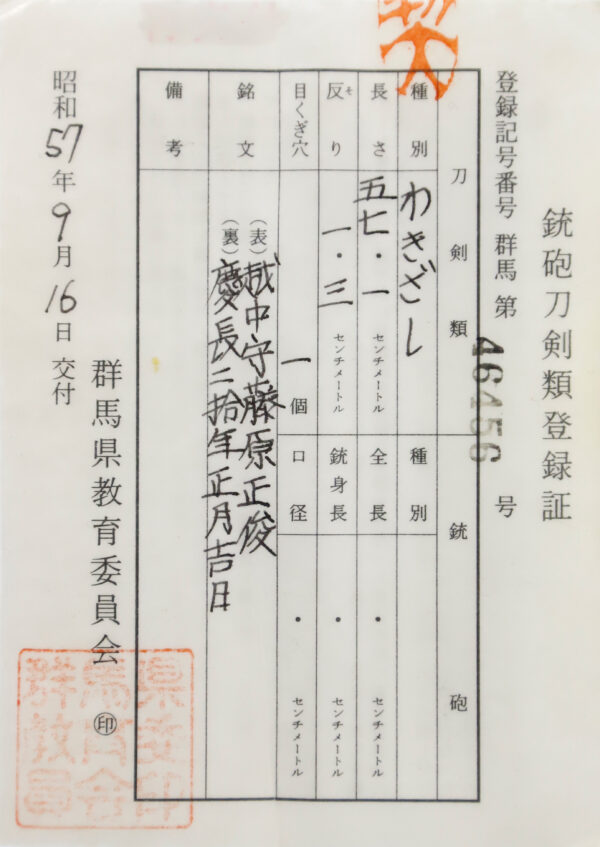 銃砲刀剣類登録証
登録記号番号 群馬 第 46456 号
刀剣類
銃砲
種別 わきざし
種別
長さ 五七・一 センチメートル
全長 ・ センチメートル
反り 一・三 センチメートル
そ
銃身長 ・ センチメートル
目くぎ穴 一個
口径 ・ センチメートル
銘文 (表)越中守藤原正俊
(裏)慶長二拾年正月吉日
備考
群馬県教育委員会 ㊞
昭和57年9月16日交付